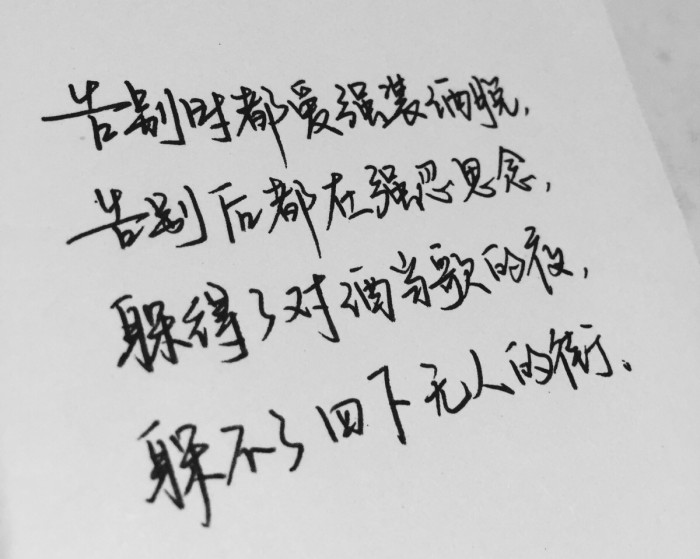 告别时都爱强装洒脱,
告别后都在强忍思念,
躲得了对酒当歌的夜,
躲不了四下无人的街.